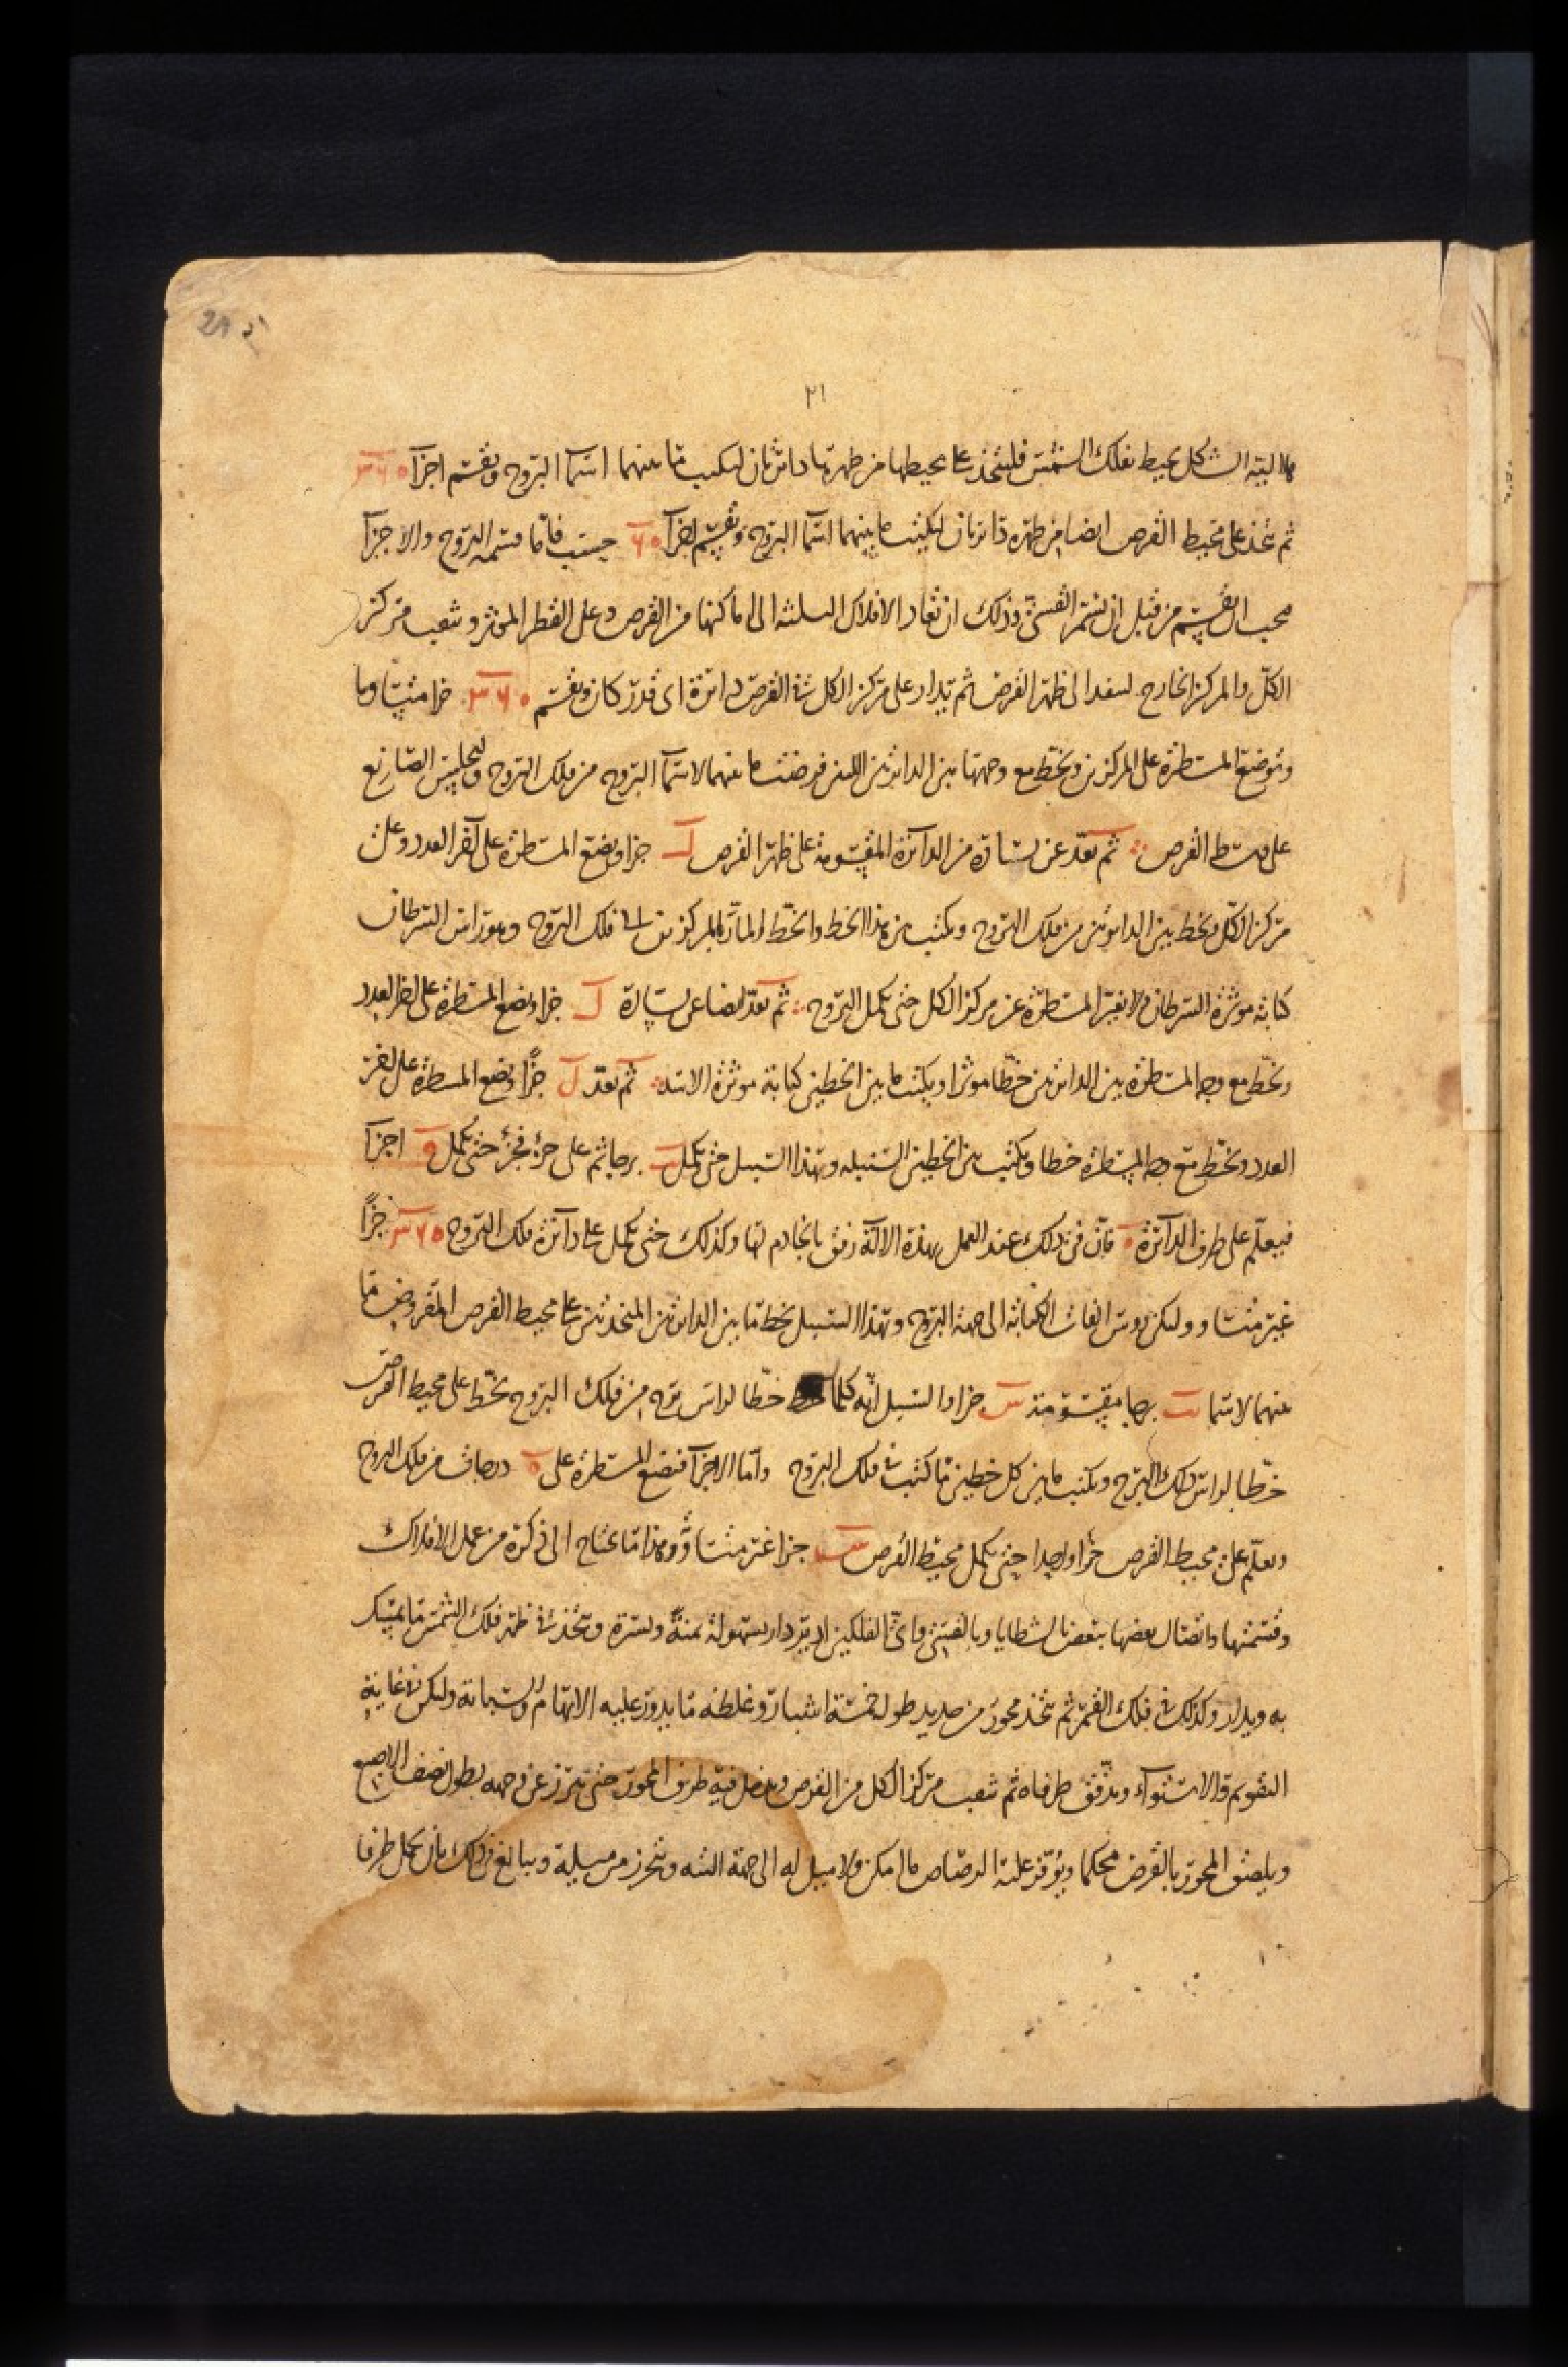 ٢١
هلالية الشكل يحيط بفلك الشمس فليتخذ على محيطها من ظهرها دائرتان ليكتب ما بينهما اسما البروج ويقسم اجزآ ٣٦٠
ثم يتخذ على محيط القرص ايضا من ظهره دائرتان ليكتب ما بينهما اسما البروج ويقسم اجزآ ٦٠ حسب فاما قسمة البروج والاجزآ
فيجب ان يقسم من قبل ان يتمر القسى وذلك ان تعاد الافلاك الثلثة الى اماكنها من القرص وعلى القطر الموثر وثقب مركز
الكل والمركز الخارج لينفد الى ظهر القرص ثم تدار على مركز الكل في القرص دائرة اى قدر كان ويقسم ٣٦٠ جزا متساويا
وتوضع المسطرة على المركزين ويخط مع وجهها بين الدائرتين اللتين فرضت ما بينهما لاسمآ البروج من فلك البروج وليجلس الصانع
على وسط القرص ثم تعد عن يساره من الدآئرة المقسومة على ظهر القرص ل جزا ويضع المسطرة على آخر العدد وعلى
مركز الكل ويخط بين الدائرتين من فلك البروج ويكتب بين هذا الخط والخط المار بالمركزين في فلك البروج وهو راس السرطان
كتابة موثرة السرطان ولا يغير المسطرة عن مركز الكل حتى يكمل البروج ثم تعد ايضا عن يساره ل جزا ويضع المسطرة على اخر العدد
ويخط مع وجه المسطرة بين الدائرتين خطا موثرا ويكتب ما بين الخطين كتابة موثرة الاسد ثم تعد ل جزًا ويضع المسطرة على اخر
العدد ويخط مع وجه المسطرة خطا ويكتب بين الخطين السنبله وبهذا السبيل حتى يكمل يب برجا ثم على جزء فجزء حتى يكمل ه اجزآ
فيعلم على طرف الدآئرة ه فان في ذلك عند العمل بهذه الآلة رفق بالخادم لها وكذلك حتى يكمل على دآئرة فلك البروج ٣٦٠ جزًا
غير متساو وليكن روس الفات الكتابة الى جهة البروج وبهذا السبيل يخط ما بين الدائرتين المتخذتين على محيط القرص المفروض ما
بينهما لاسما يب برجا مقسومة س جزا والسبيل انه كلما خط خطا لراس برج من فلك البروج يخط على محيط القرص
خطا لراس ذلك البرج ويكتب ما بين كل خطين ما كتب في فلك البروج واما الاجزآ فتضع المسطرة على ه درجات من فلك البروج
ويعلم على محيط القرص جزا واحدا حتى يكمل محيط القرص س جزا غير متساو وهذا ما يحتاج الى ذكره من عمل الافلاك
وقسمتها واتصال بعضها ببعض بالشظايا وبالقسى واى الفلكين اريد دار بسهولة يمنةً ويسرة ويتخذ في ظهر فلك الشمس ما يمسك
به ويدار وكذلك في فلك القمر ثم يتخذ محور من حديد طوله خمسة اشبار وغلظه ما يدور عليه الابهام والسبابة وليكن في غاية
التقويم والاستوآء ويدقق طرفاه ثم يثقب مركز الكل من القرص ويدخل فيه طرف المحور حتى يبرز عن وجهه بطول نصف الاصبع
ويلصق المحور بالقرص محكما ويوقر عليه الرصاص ما امكن ولا ميل له الى جهة البتة ويتحرز من ميله ويبالغ في ذلك بان يحمل طرفا